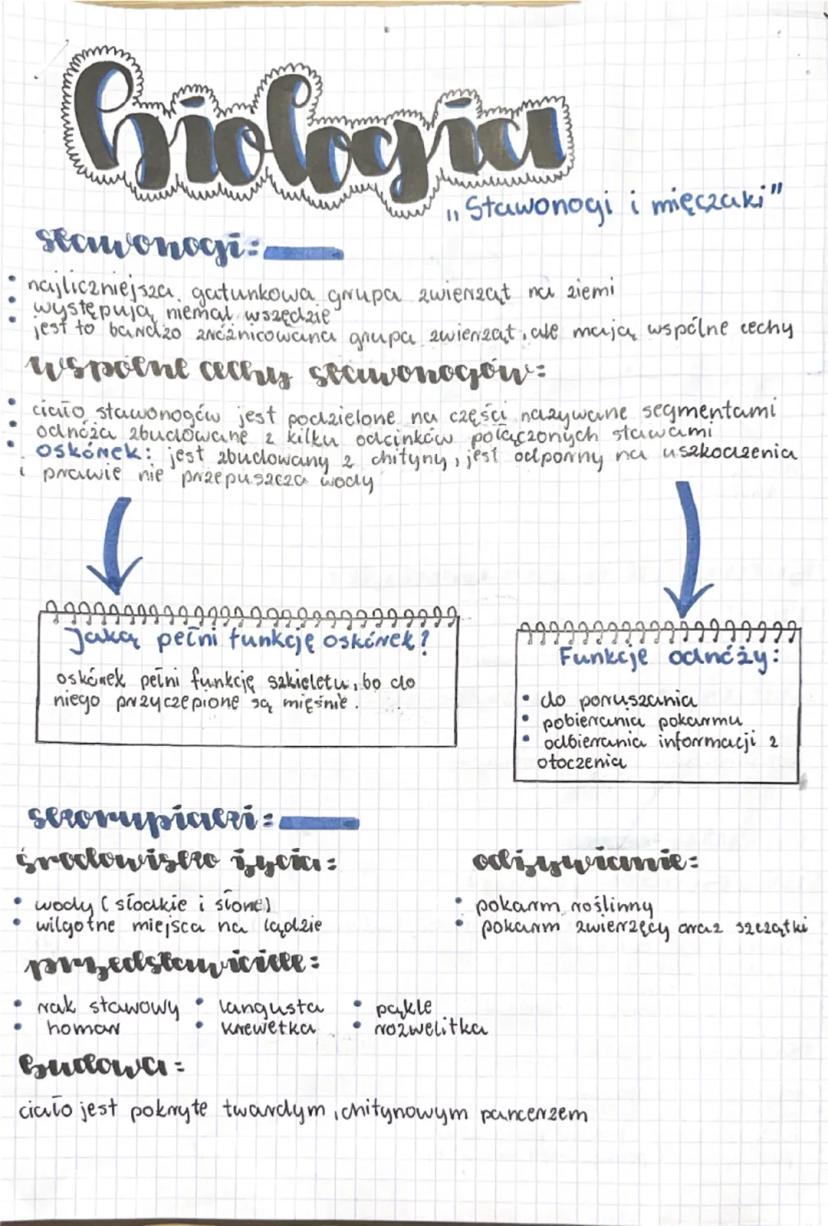 biologia
„Stawonogi i mięczaki"
stawonogi:
• najliczniejsza gatunkowa grupa zwierząt na ziemi
• występują niemal wszędzie
• jest to bardzo zróżnicowana grupa zwierząt, ale mają wspólne cechy
wspólne cechy stawonogów:
• ciało stawonogów jest podzielone na części nazywane segmentami
• odnóża zbudowane z kilku odcinków połączonych stawami
• oskórek: jest zbudowany z chityny, jest odporny na uszkodzenia
i prawie nie przepuszcza wody
Jaką pełni funkcję oskórek?
oskórek pełni funkcję szkieletu, bo do
niego przyczepione są mięśnie.
Funkcje odnóży:
• do poruszania
• pobierania pokarmu
• odbierania informacji z
otoczenia
skorupiaki:
środowisko życia:
• wody (słodkie i słone)
• wilgotne miejsca na lądzie
odżywianie:
• pokarm roślinny
• pokarm zwierzęcy oraz szczątki
przedstawiciele:
• rak stawowy • langusta • pąkle
• homar • krewetka • rozwelitka
budowa:
ciało jest pokryte twardym, chitynowym pancerzem